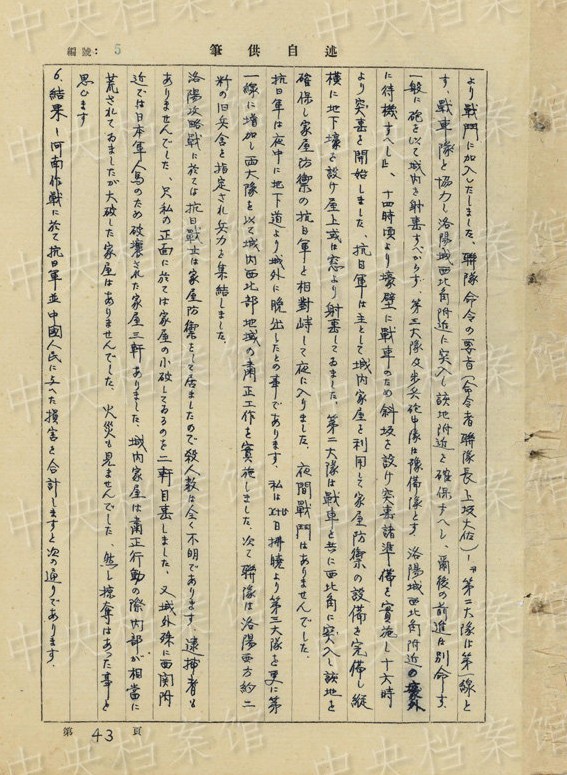 述自供筆
編號: 5
より戦鬥に加入いたしました、聯隊命令の要旨(命令者聯隊長上坂大佐)=『第二大隊は第一線と
す、戦車隊と協力し洛陽城西北角附近に突入し該地附近を確保すへし、爾後の前進は別命す、
一般に砲を以て城内を射撃すべからず、第三大隊及歩兵砲中隊は豫備隊とす、洛陽城西北角附近の壕外
に待機すへし』、十四時頃より壕壁に戦車のため斜坂を設け突撃諸準備を実施し十六時
より突撃を開始しました、抗日軍は主として城内家屋を利用して家屋防禦の設備を完備し縦
横に地下壕を設け屋上或は窓より射撃してゐました、第二大隊は戦車と共に西北角に突入し該地を
確保し家屋防禦の抗日軍と相対峙して夜に入りました、夜間戦鬥はありませんでした、
抗日軍は夜中に地下道より城外に脱出したとの事であります、私は 日拂暁より第三大隊を更に第
一線に増加し両大隊を以て城内西北部地域の粛正工作を実施しました、次て聯隊は洛陽西方約二
粁の旧兵舎を指定され兵力を集結しました、
洛陽攻略戦に於ては抗日戦士は家屋防禦をして居ましたので殺人数は全く不明であります、逮捕者も
ありませんでした、只私の正面に於ては家屋の小破してゐるのを二軒目撃しました、又城外殊に西関附
近では日本軍人馬のため破壊された家屋三軒ありました、城内家屋は粛正行動の際内部が相当に
荒されてゐましたが大破した家屋はありませんでした、火災も見ませんでした 然し掠奪はあった事と
思ひます
6. 結果－河南作戦に於て抗日軍並中國人民に与へた損害を合計しますと次の通りであります、
第 43 頁
中央档案馆